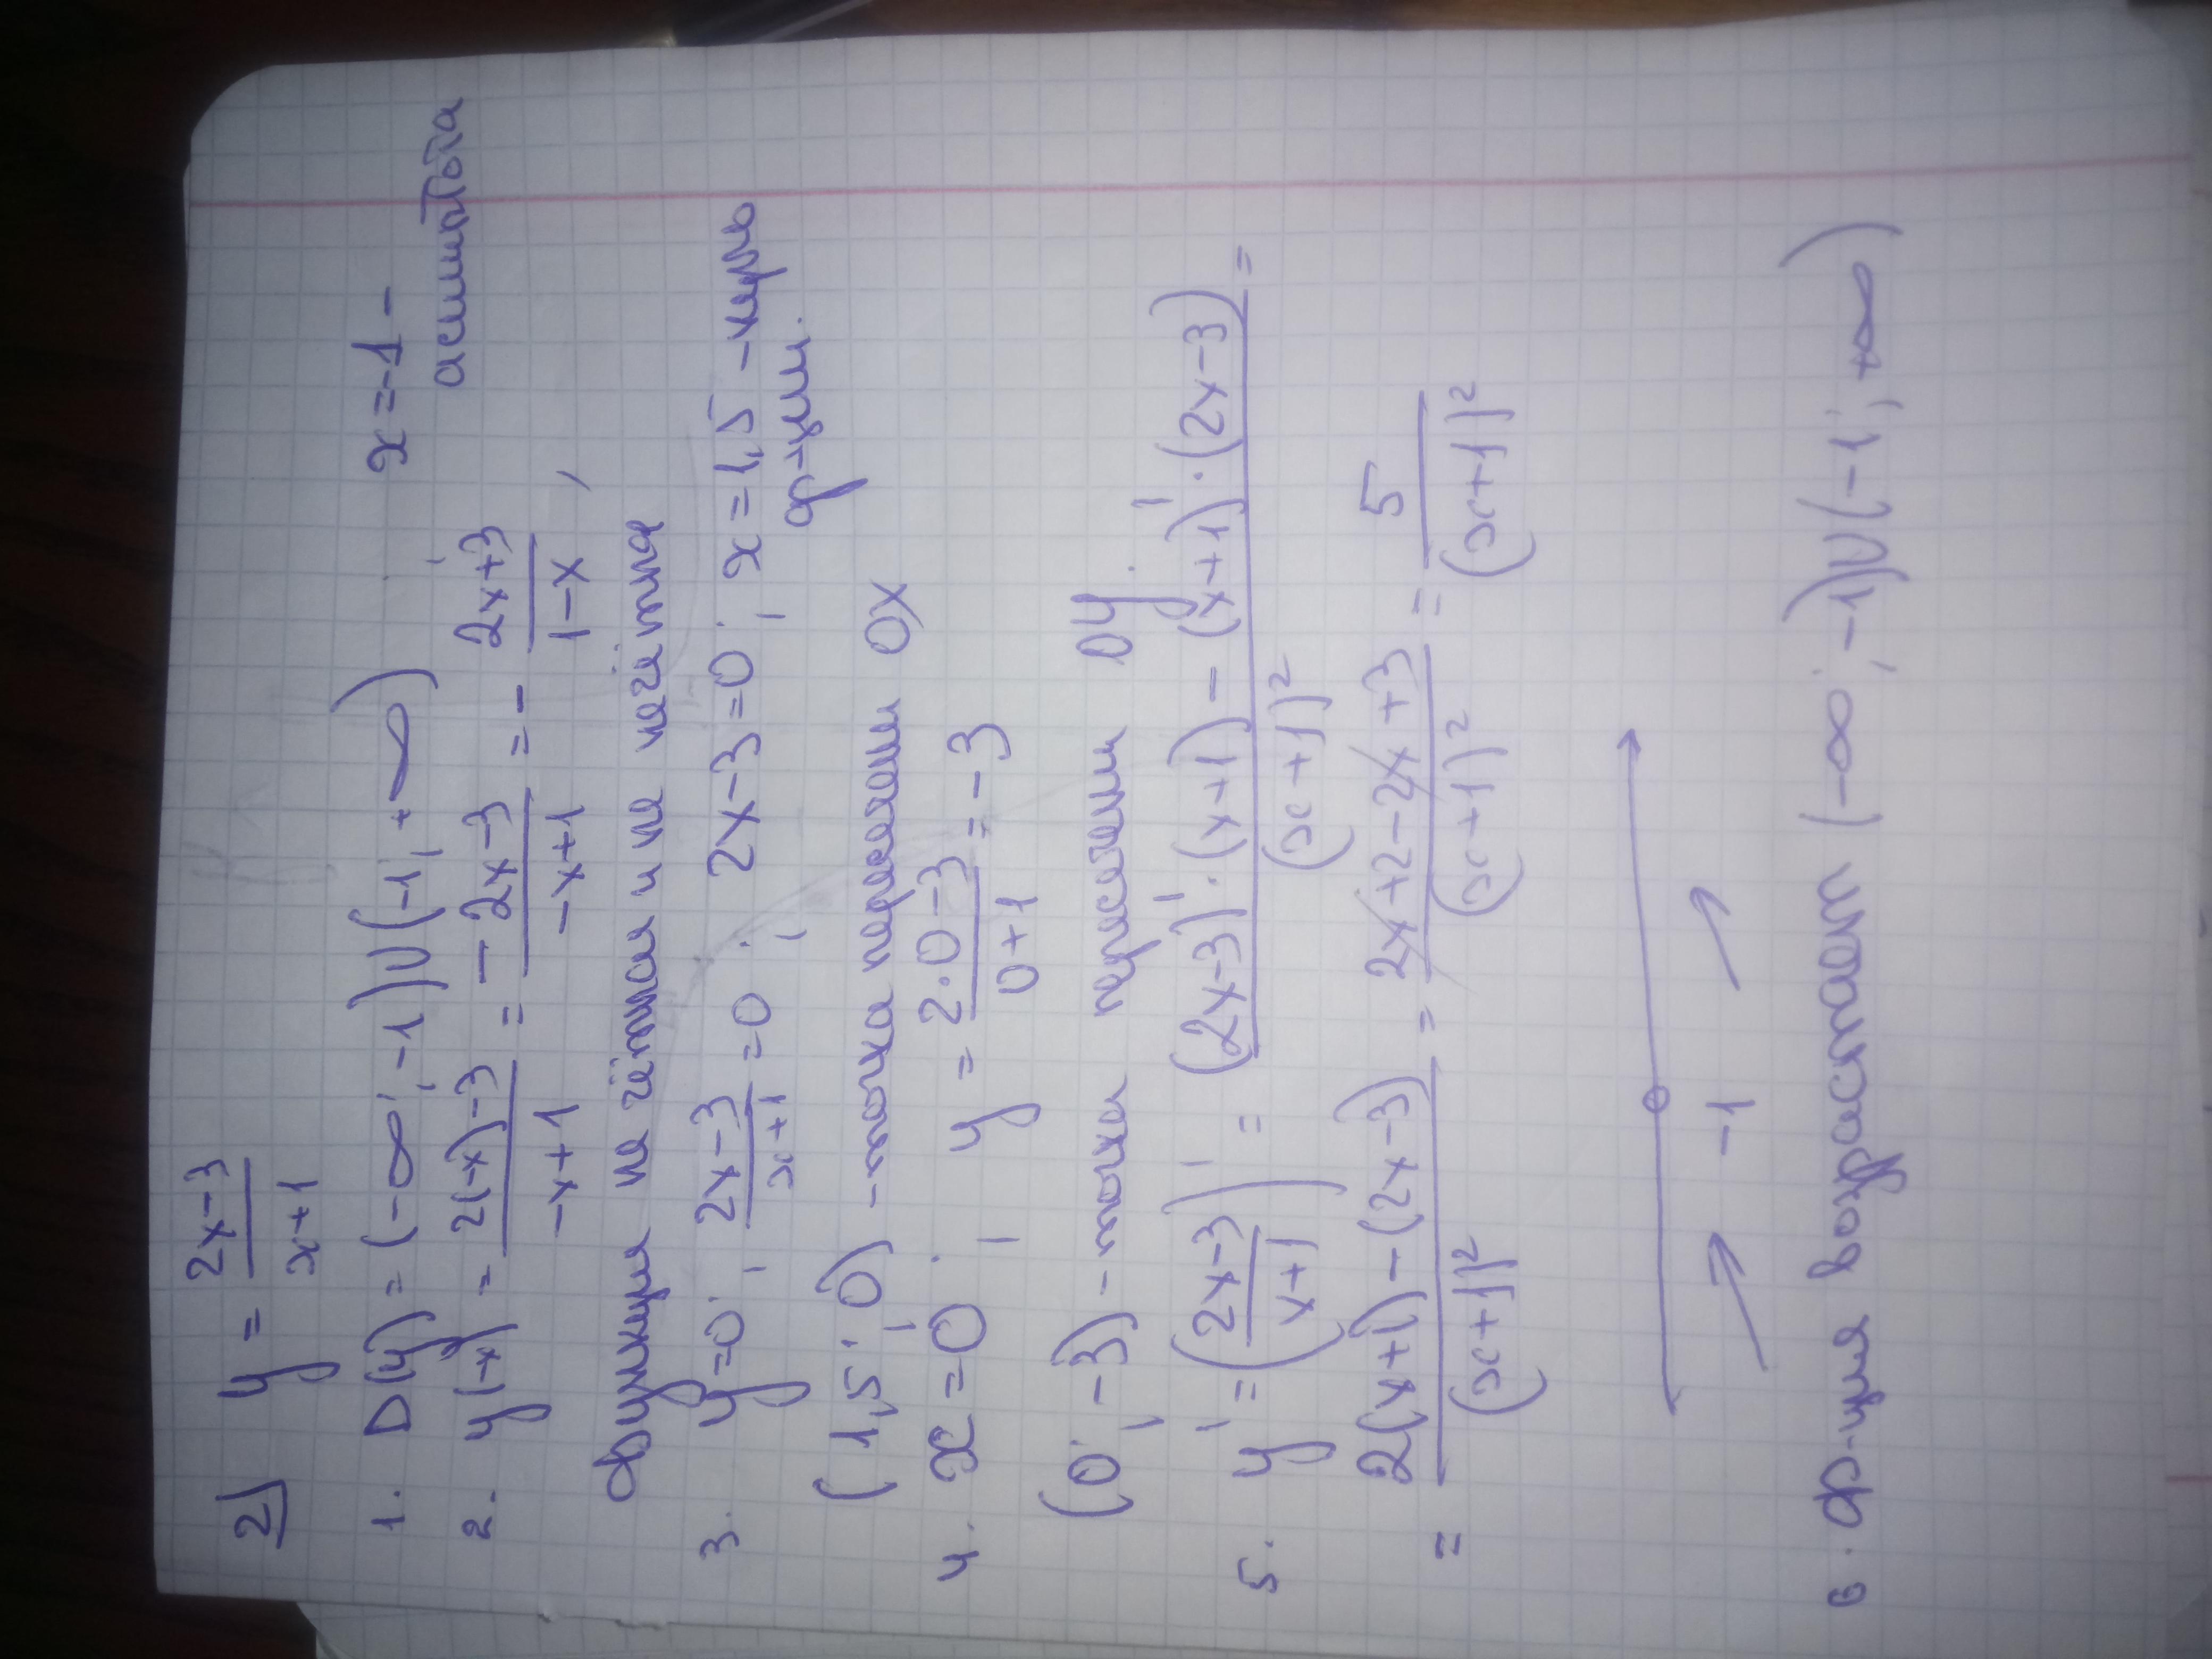 2) y = (2x-3)/(x+1)
1. D(y) = (-∞; -1)∪(-1; +∞) x = -1 -
асимптота
2. y(-x) = (2(-x)-3)/(-x+1) = (-2x-3)/(-x+1) = - (2x+3)/(1-x),
функция не чётная и не нечётная
3. y=0; (2x-3)/(x+1) = 0; 2x-3=0; x=1,5 - нуль
ф-ции.
(1,5; 0) - точка пересечения Ox
4. x=0; y = (2·0-3)/(0+1) = -3
(0; -3) - точка пересечен Oy.
5. y' = ((2x-3)/(x+1))' = ((2x-3)'·(x+1) - (x+1)'·(2x-3))/(x+1)² =
= (2(x+1)-(2x-3))/(x+1)² = (2x+2-2x+3)/(x+1)² = 5/(x+1)²
-1
6. Ф-ция возрастает (-∞; -1)∪(-1; +∞)